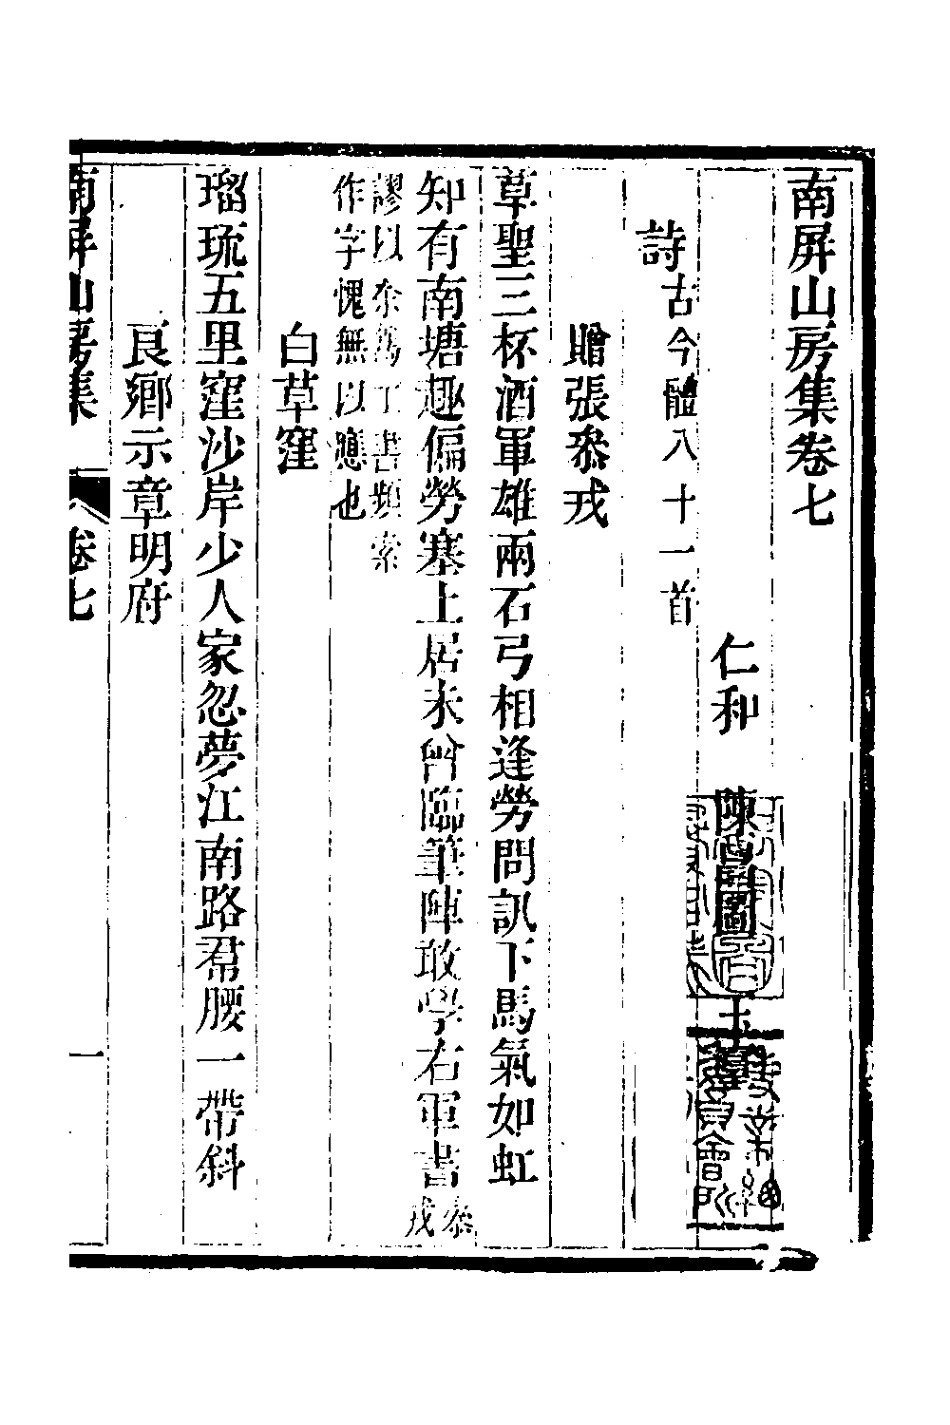 南屏山房集卷七
仁和　陳昌圖　玉臺
詩古今體八十一首
贈張叅戎
草聖三杯酒軍雄兩石弓相逢勞問訊下馬氣如虹
知有南塘趣偏勞塞上居未曾臨筆陣敢學右軍書叅戎
謬以余爲工書頻索
作字愧無以應也
白草窪
瑠琉五里窪沙岸少人家忽夢江南路帬腰一帶斜
良鄉示章明府
南屏山房集　卷七　一